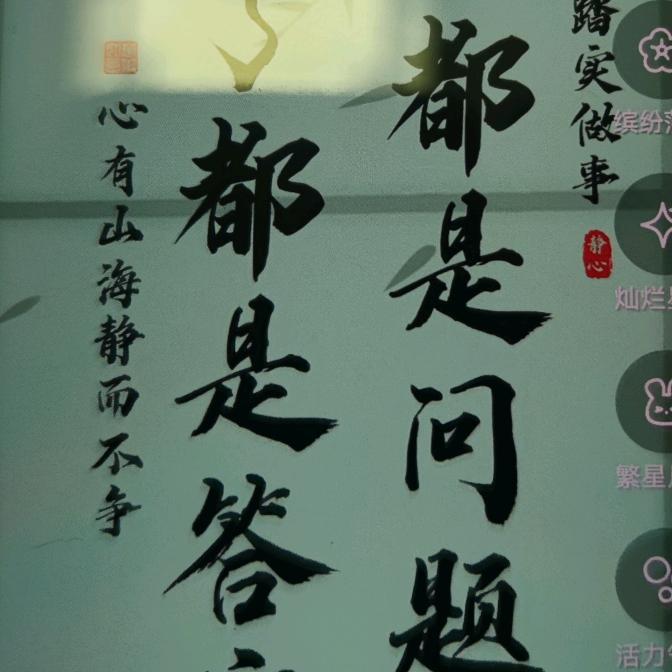 踏实做事
静心
都是问题
都是答
心有山海静而不争
缤纷
灿烂
繁星
活力